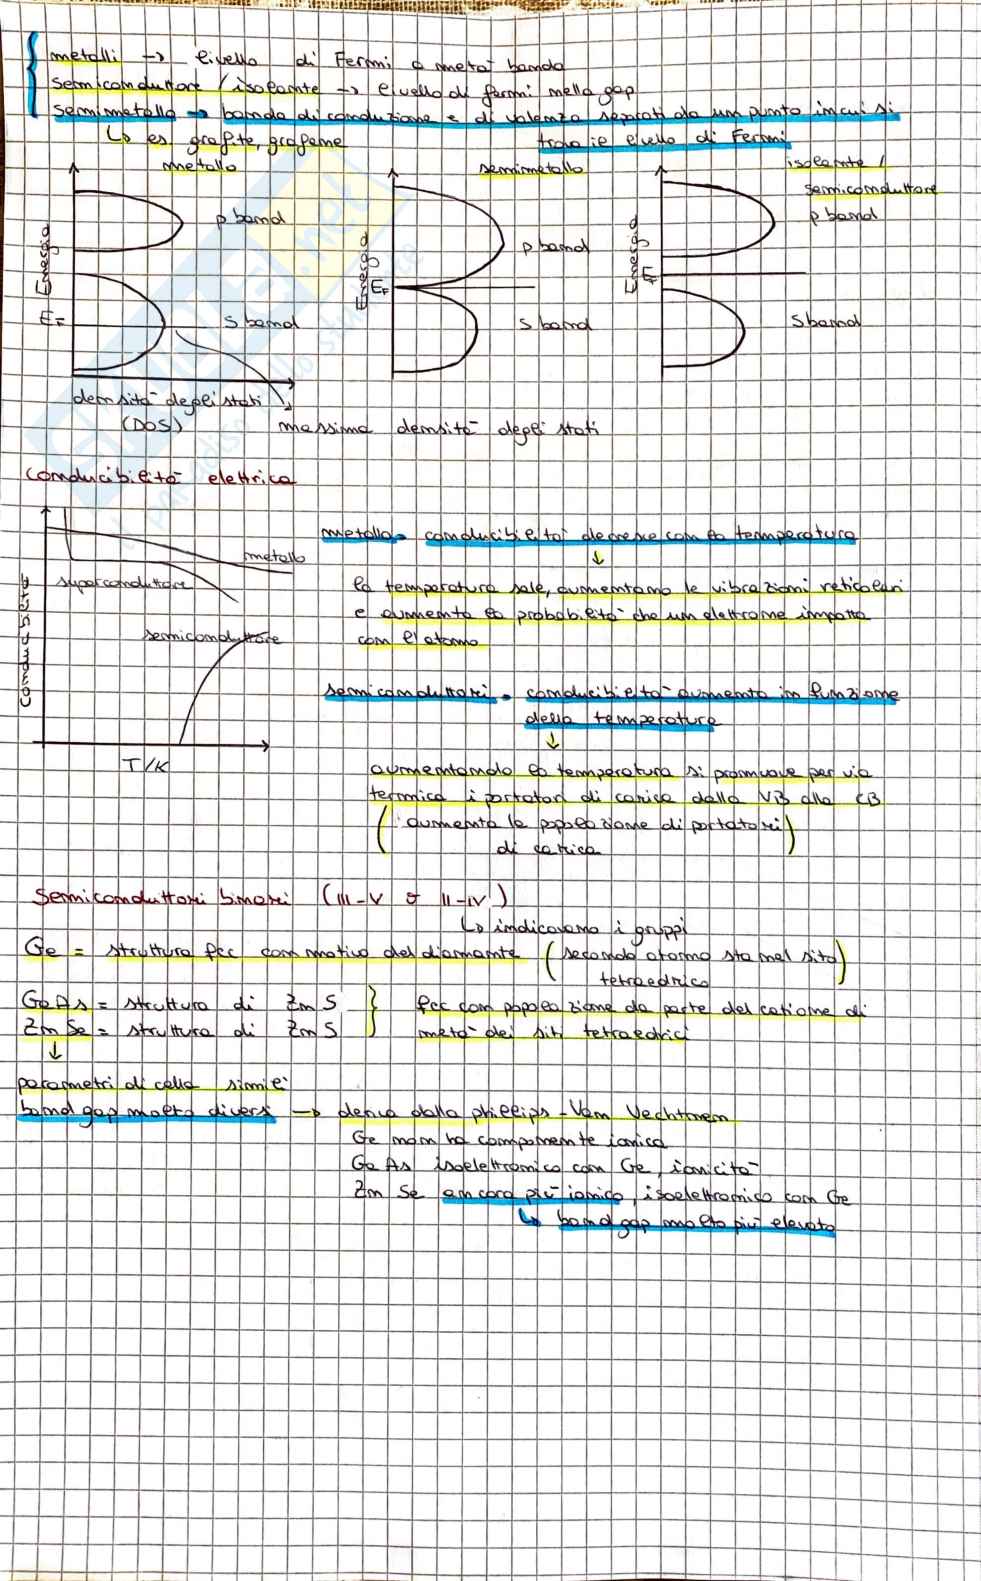 metalli → livello di Fermi a metà banda
semiconduttore / isolante → livello di fermi nella gap
semimetallo → banda di conduzione e di valenza separati da un punto in cui si
trova il livello di Fermi
↳ es. grafite, grafene
metallo
semimetallo
isolante /
semiconduttore
p band
p band
p band
Energia
Energia
Energia
EF
EF
EF
s band
s band
s band
densità degli stati
(DOS)
massima densità degli stati
conducibilità elettrica
metallo
superconduttore
semiconduttore
Conducibilità
T/K
metallo = conducibilità decresce con la temperatura
↓
la temperatura sale, aumentano le vibrazioni reticolari
e aumenta la probabilità che un elettrone impatta
con l'atomo
semiconduttori = conducibilità aumenta in funzione
della temperatura
↓
aumentando la temperatura si promuove per via
termica i portatori di carica dalla VB alla CB
(aumenta la popolazione di portatori)
di carica
Semiconduttori binari (III-V o II-IV)
↳ indicavano i gruppi
Ge = struttura fcc con motivo del diamante (secondo atomo sta nel sito)
tetraedrico
GaAs = struttura di ZnS } fcc con popolazione da parte del catione di
ZnSe = struttura di ZnS } metà dei siti tetraedrici
↓
parametri di cella simili
band gap molto diversi → deriva dalla phillips-Van Vechtmen
Ge non ha componente ionica
GaAs isoelettronico con Ge, ionicità
ZnSe ancora più ionico, isoelettronico con Ge
↳ band gap molto più elevato
il paradiso dello studente